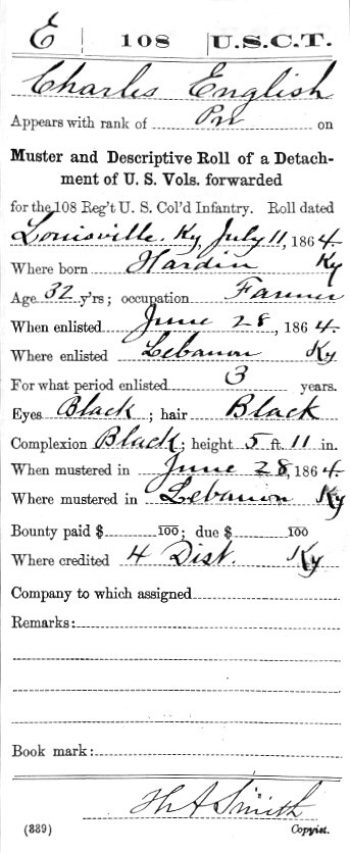 E | 108 | U.S.C.T.
Charles English
Appears with rank of Pvt on
Muster and Descriptive Roll of a Detach-
ment of U. S. Vols. forwarded
for the 108 Reg't U. S. Col'd Infantry. Roll dated
Louisville, Ky, July 11, 1864.
Where born Hardin Ky
Age 32 y'rs; occupation Farmer
When enlisted June 28, 1864.
Where enlisted Lebanon Ky
For what period enlisted 3 years.
Eyes Black; hair Black
Complexion Black; height 5 ft. 11 in.
When mustered in June 28, 1864.
Where mustered in Lebanon Ky
Bounty paid $ 100; due $ 100
Where credited 4 Dist. Ky
Company to which assigned
Remarks:
Book mark:
H A Smith
(339) Copyist.